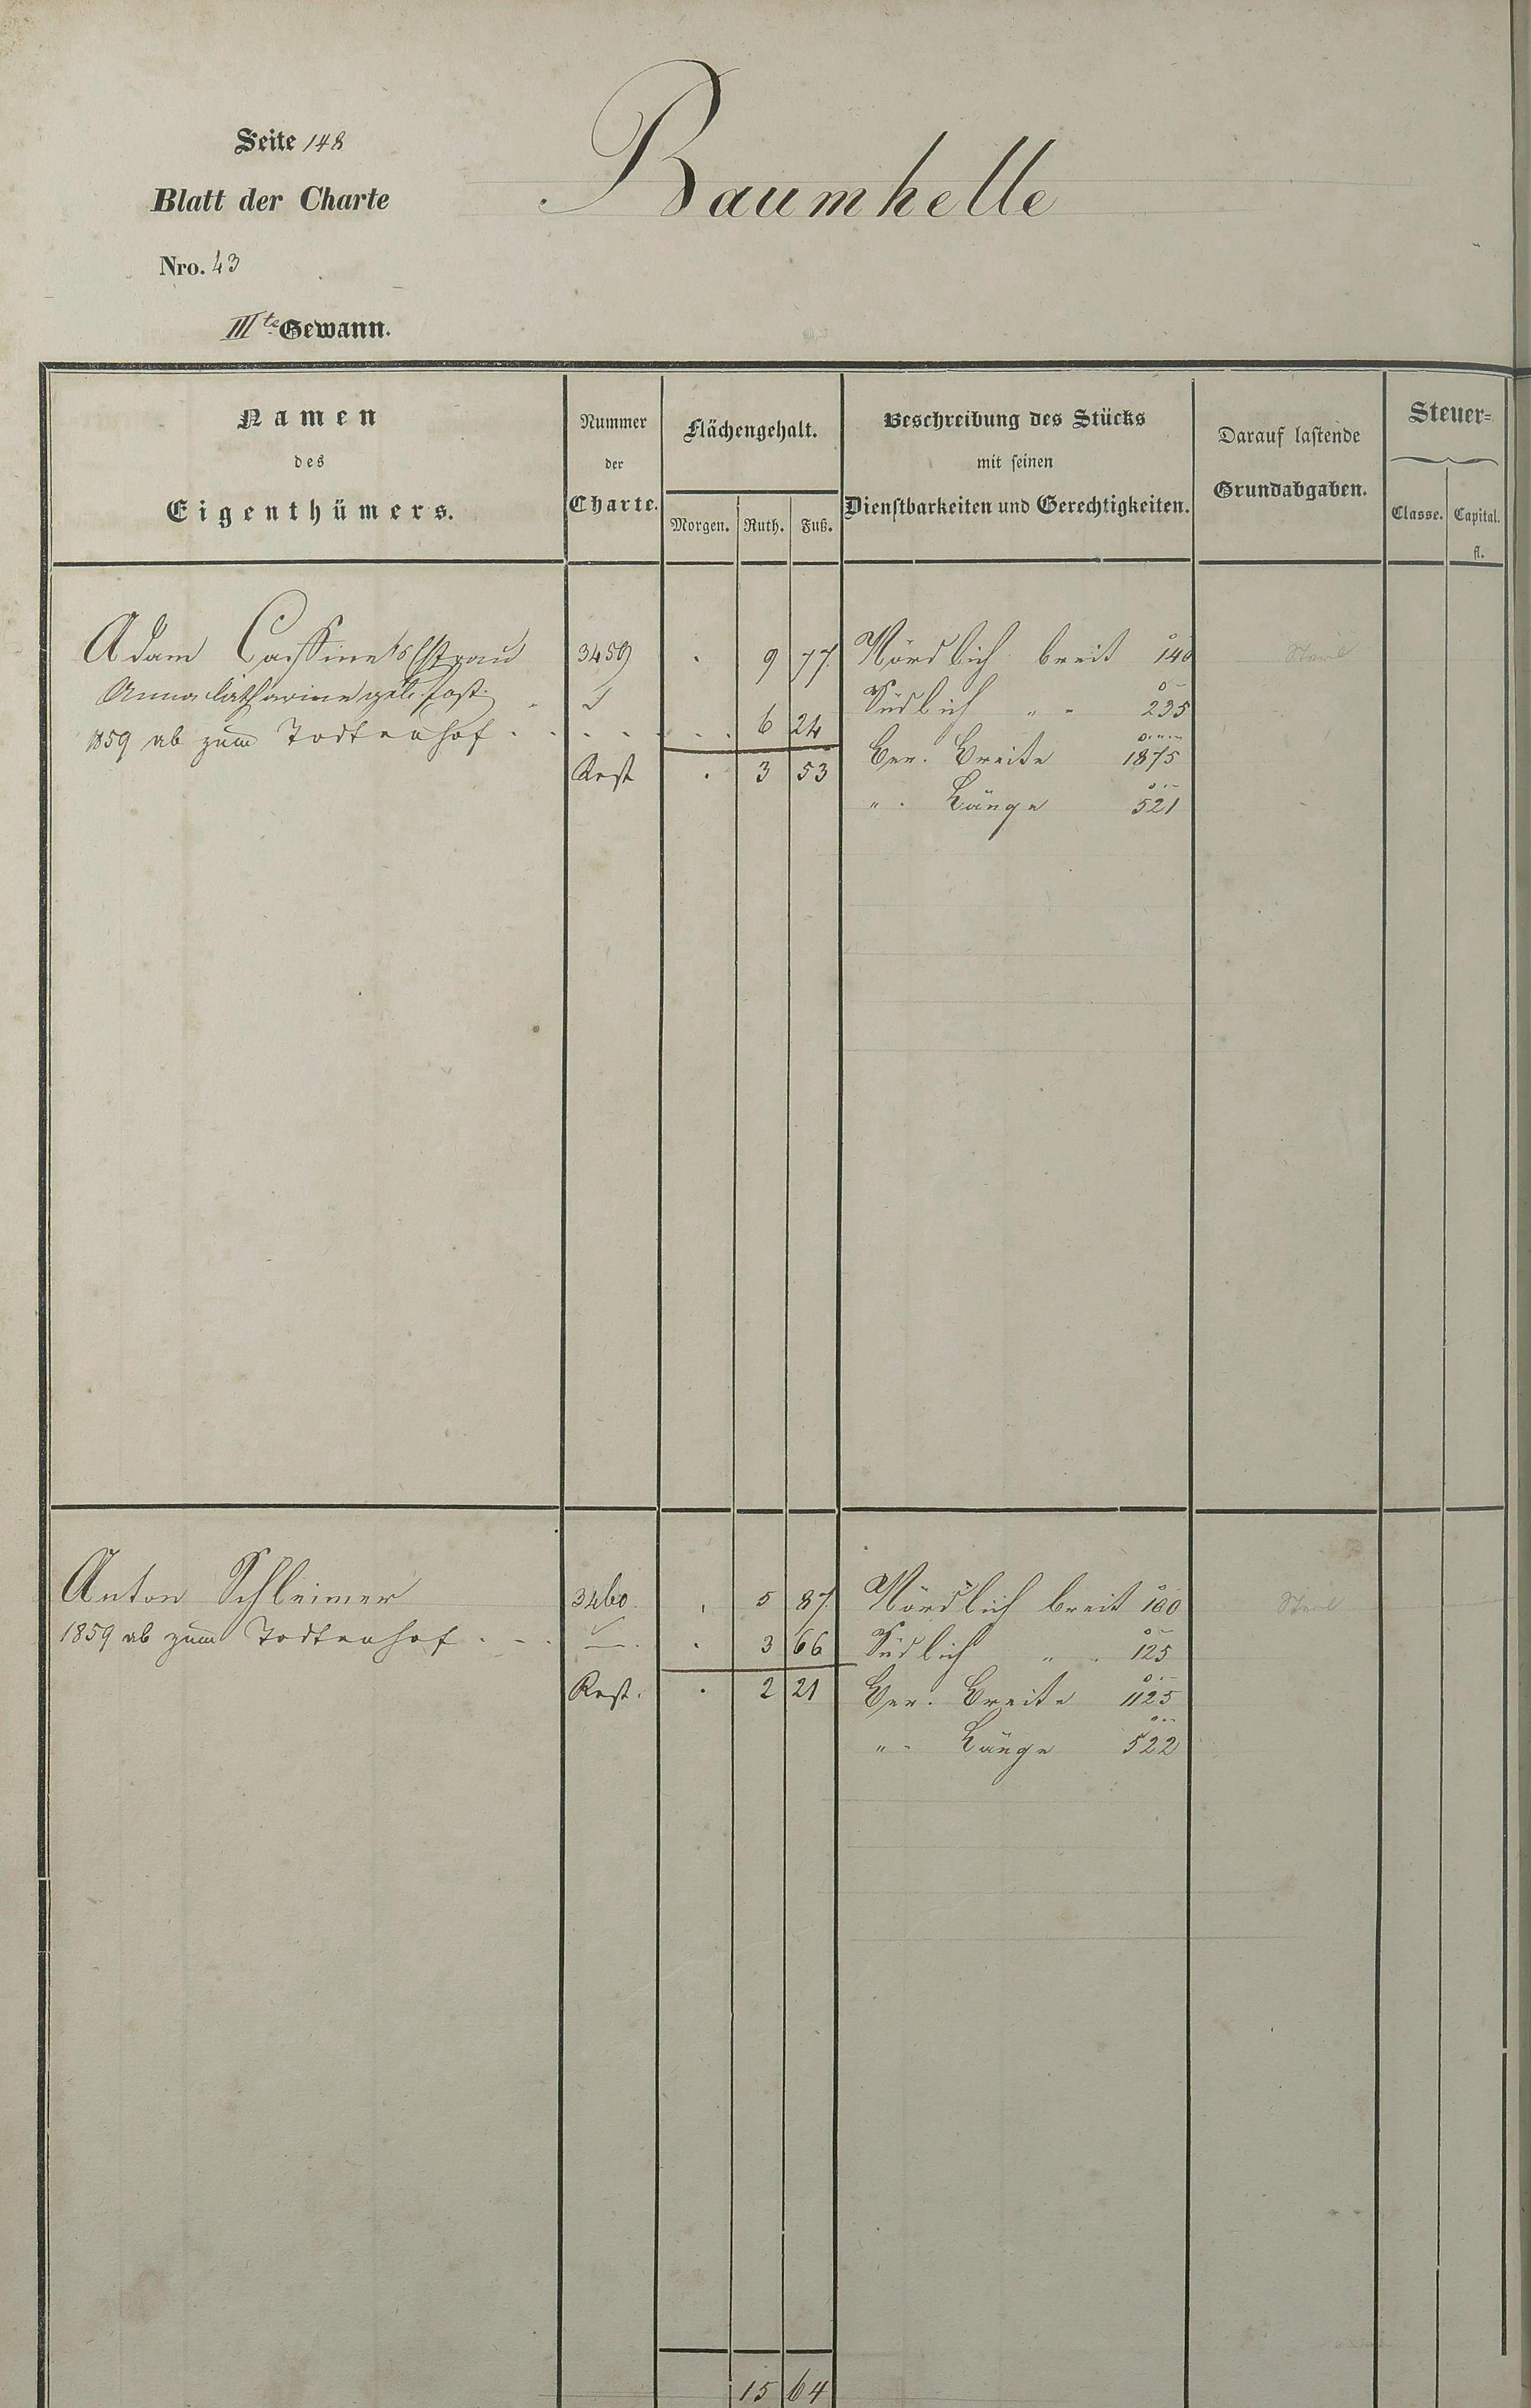 Seite 148
Baumhelle
Blatt der Charte
Nro. 43
IIIte Gewann.
Namen des Eigenthümers.
Nummer der Charte.
Flächengehalt.
Morgen. Ruth. Fuß.
Beschreibung des Stücks mit seinen Dienstbarkeiten und Gerechtigkeiten.
Darauf lastende Grundabgaben.
Steuer=
Classe. Capital.
fl.
Adam 3459 . 9 77 Nördlich breit 140
Anna Catharine geb. Jost. Südlich " " 235
1859 ab zum Todtenhof . . . . . . 6 24 Ber. Breite 1875
Rest . 3 53 " . Länge 521
Anton Schleimer 3460. . 5 87 Nördlich breit 100
1859 ab zum Todtenhof . - . . 3 66 Südlich " . 125
Rest. . 2 21 Ber. Breite 1125
" . Länge 522
15 64